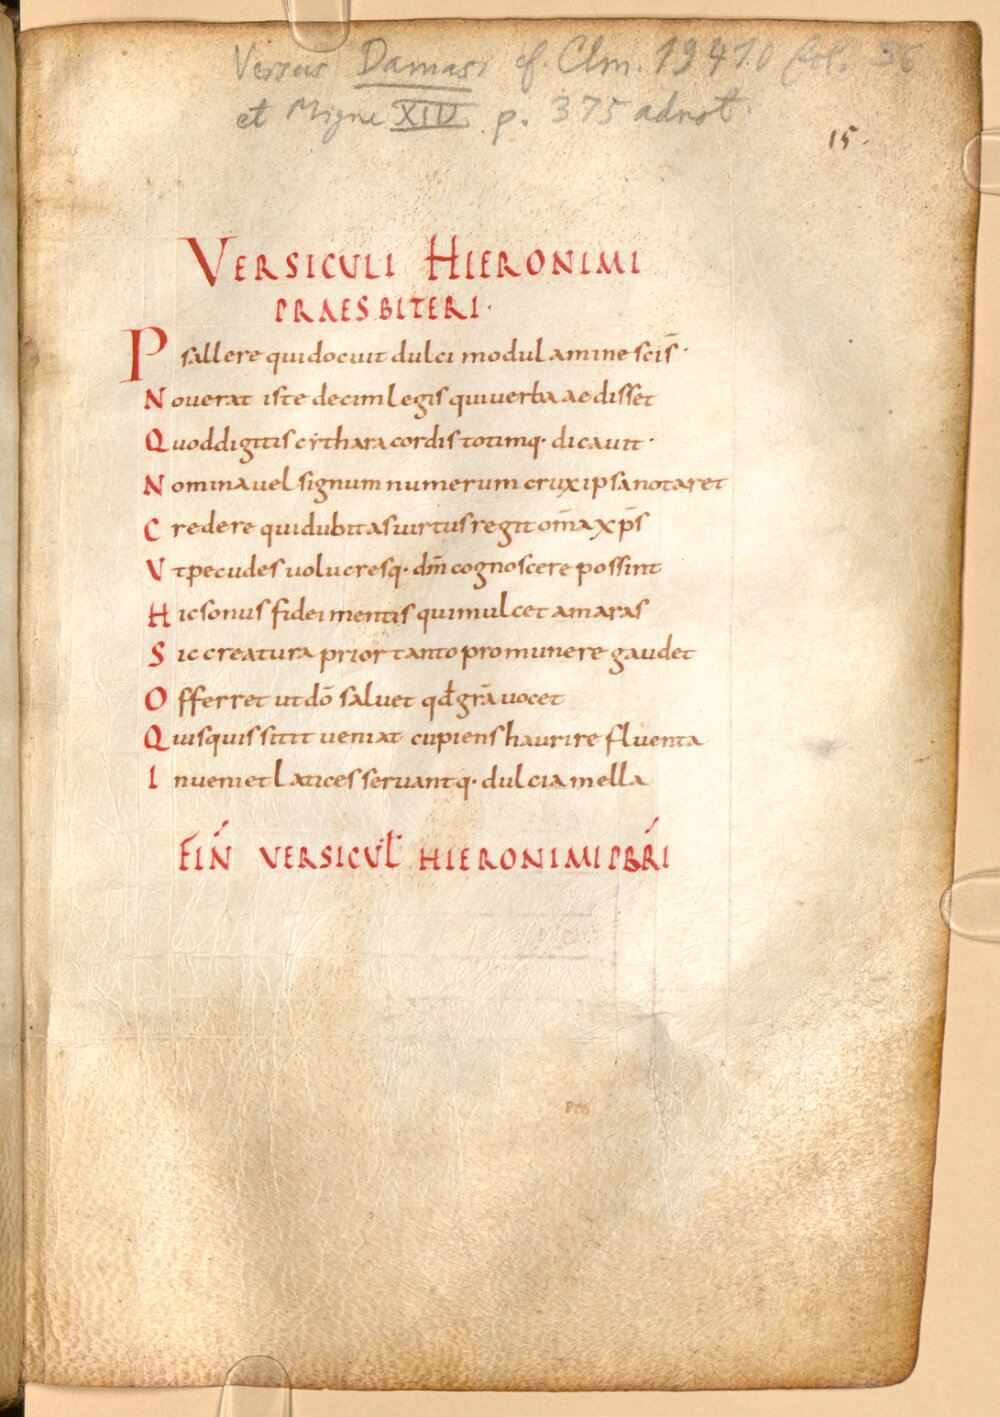 Versus Damasi cf. Clm. 19410 fol. 56
et Migne XIV p. 375 adnot.
15.
VERSICULI HIERONIMI
PRAESBITERI·
Psallere qui docuit dulci modulamine scīs·
Nouerat iste decim legis qui uerba aedisset
Quod digitis cythara cordis totimq· dicauit·
Nomina uel signum numerum crux ipsa notaret
Credere qui dubitas uirtus regit om̄a xp̄s
Vt pecudes uolucresq· dm̄ cognoscere possint
Hic sonus fidei mentis qui mulcet amaras
Sic creatura prior tanto pro munere gaudet
Offerret ut dō saluet qđ grā uocet
Quisquis sitit ueniat cupiens haurire fluenta
Inueniet latices seruantq· dulcia mella
FIŃ VERSICUL̄ HIERONIMI PBŔI